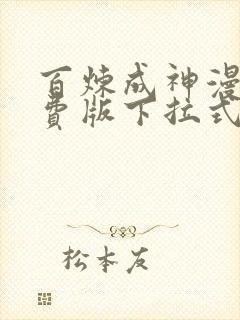 百炼成神漫
费版下拉式
松本友